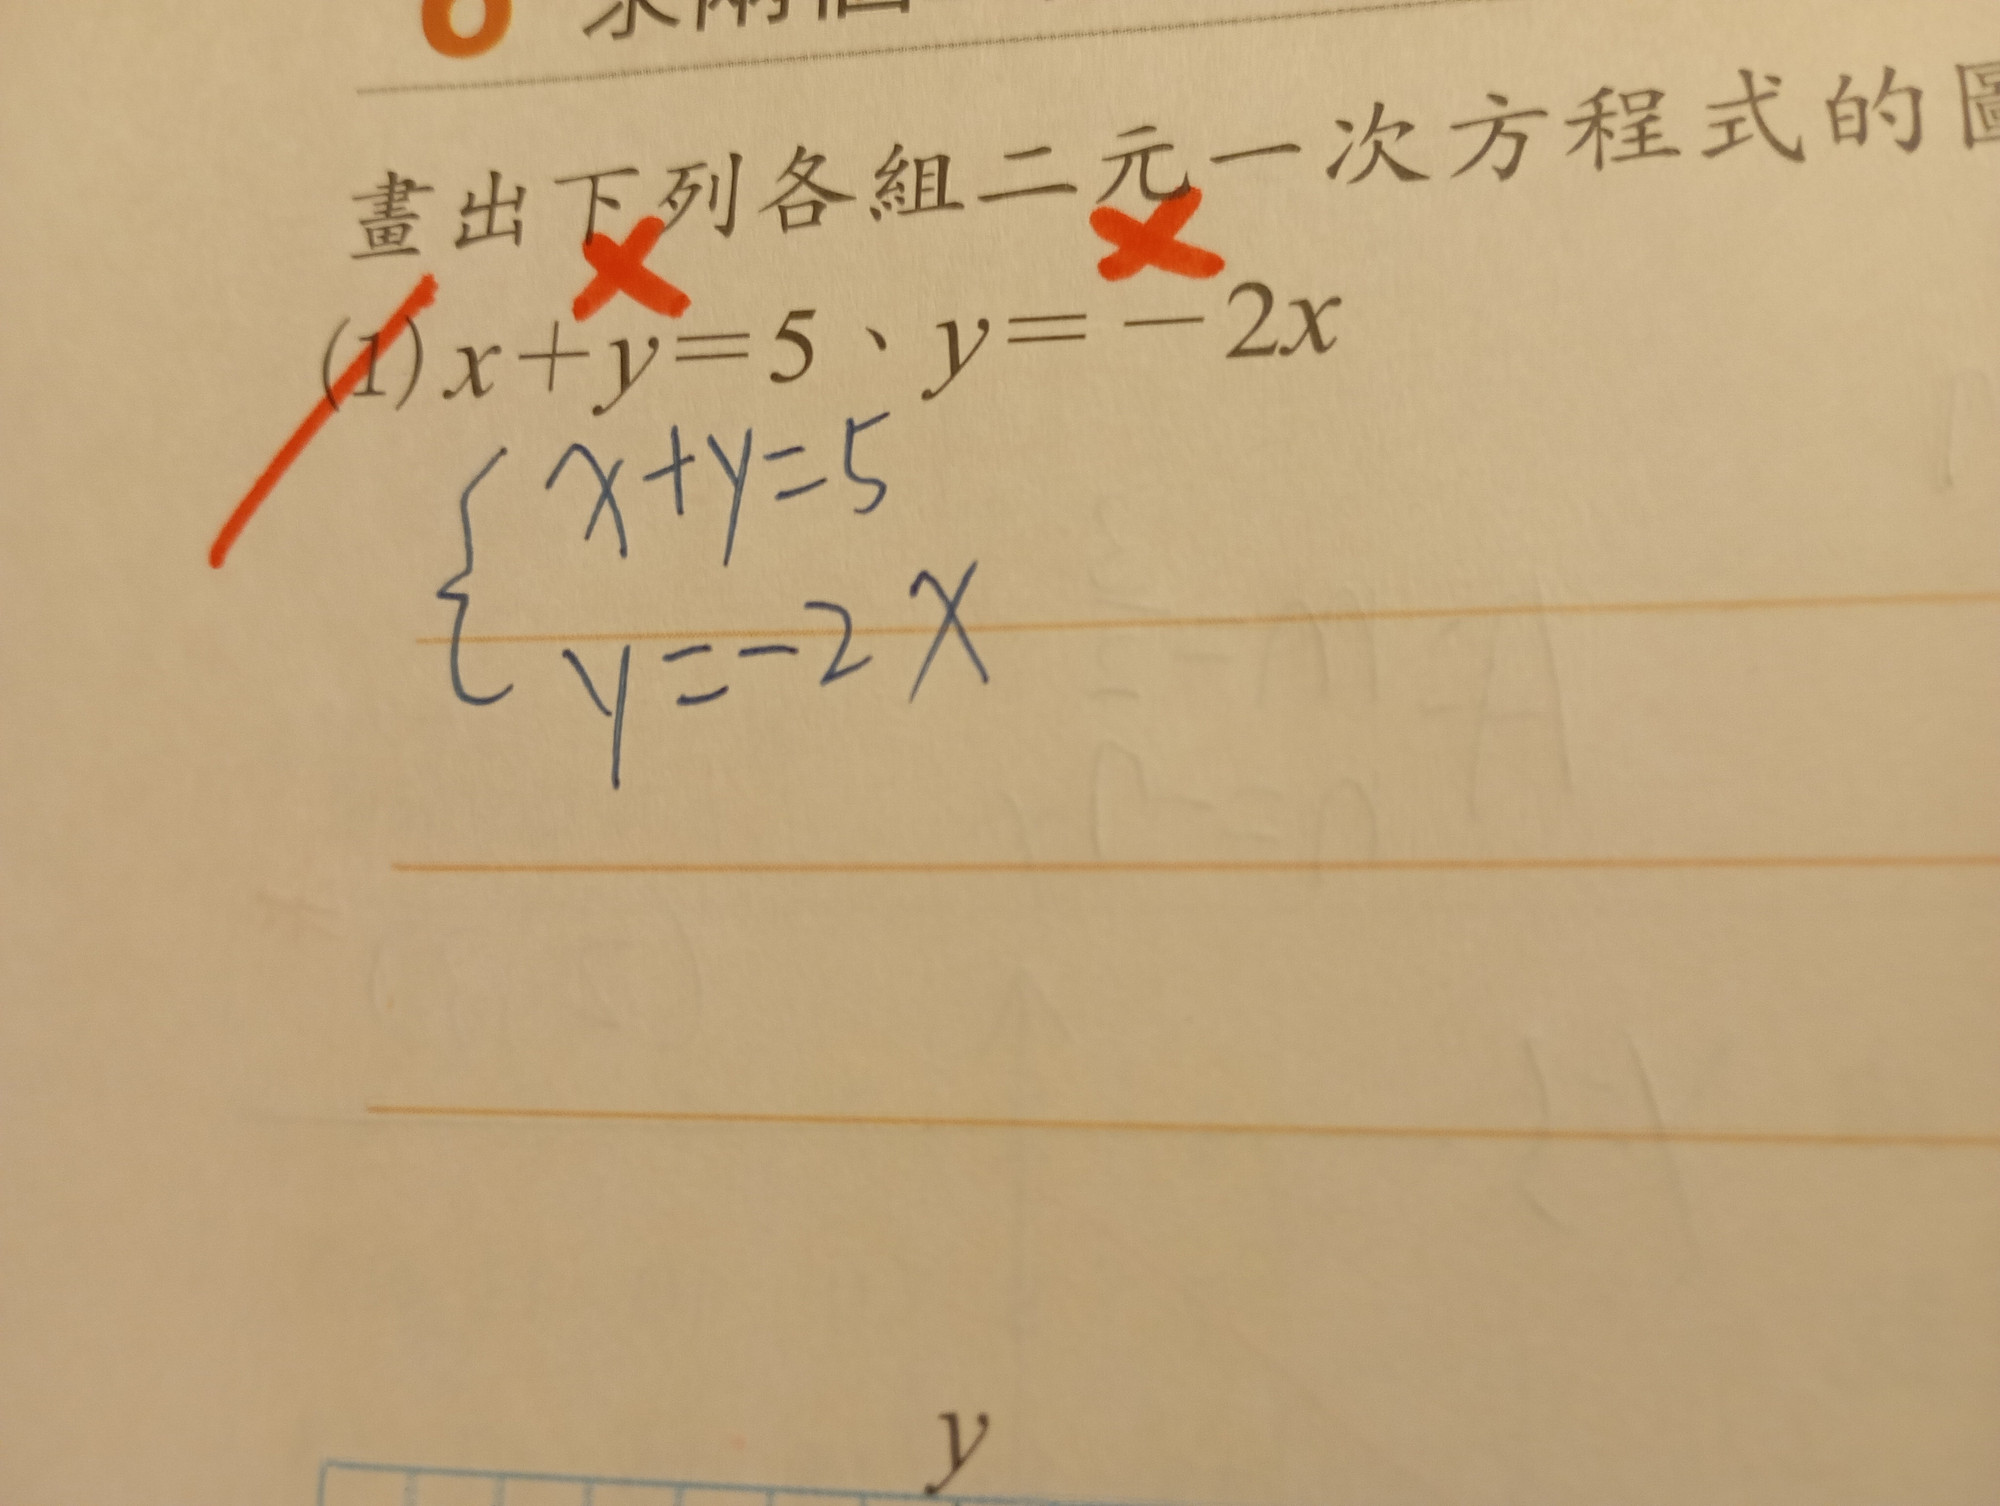 6
畫出下列各組二元一次方程式的圖
(1) x+y=5、y=-2x
x+y=5
y=-2x
y